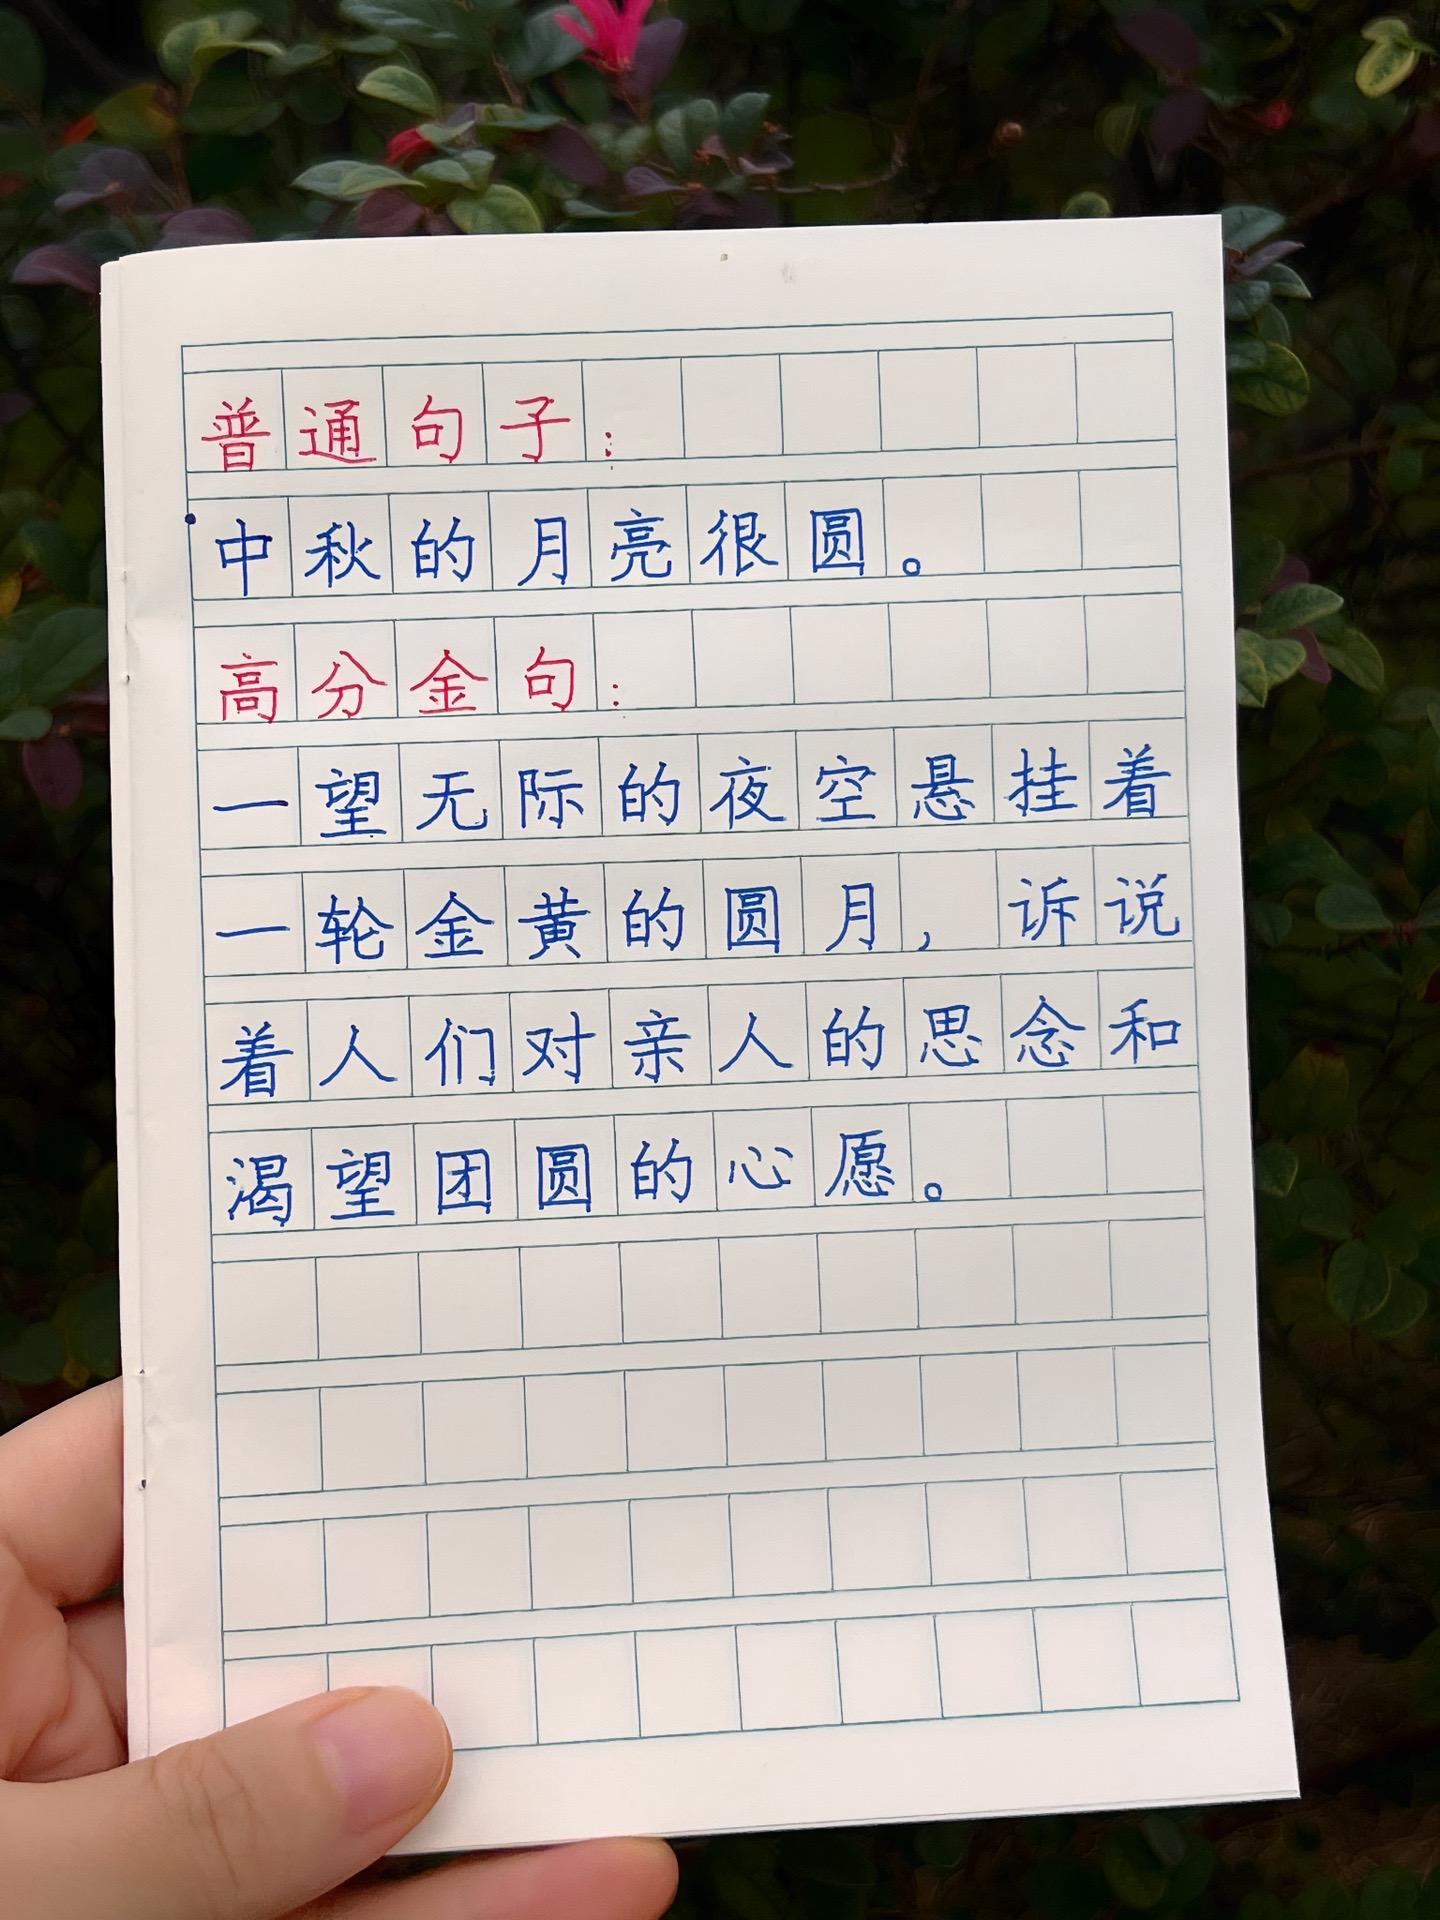 普通句子：
中秋的月亮很圆。
高分金句：
一望无际的夜空悬挂着
一轮金黄的圆月，诉说
着人们对亲人的思念和
渴望团圆的心愿。